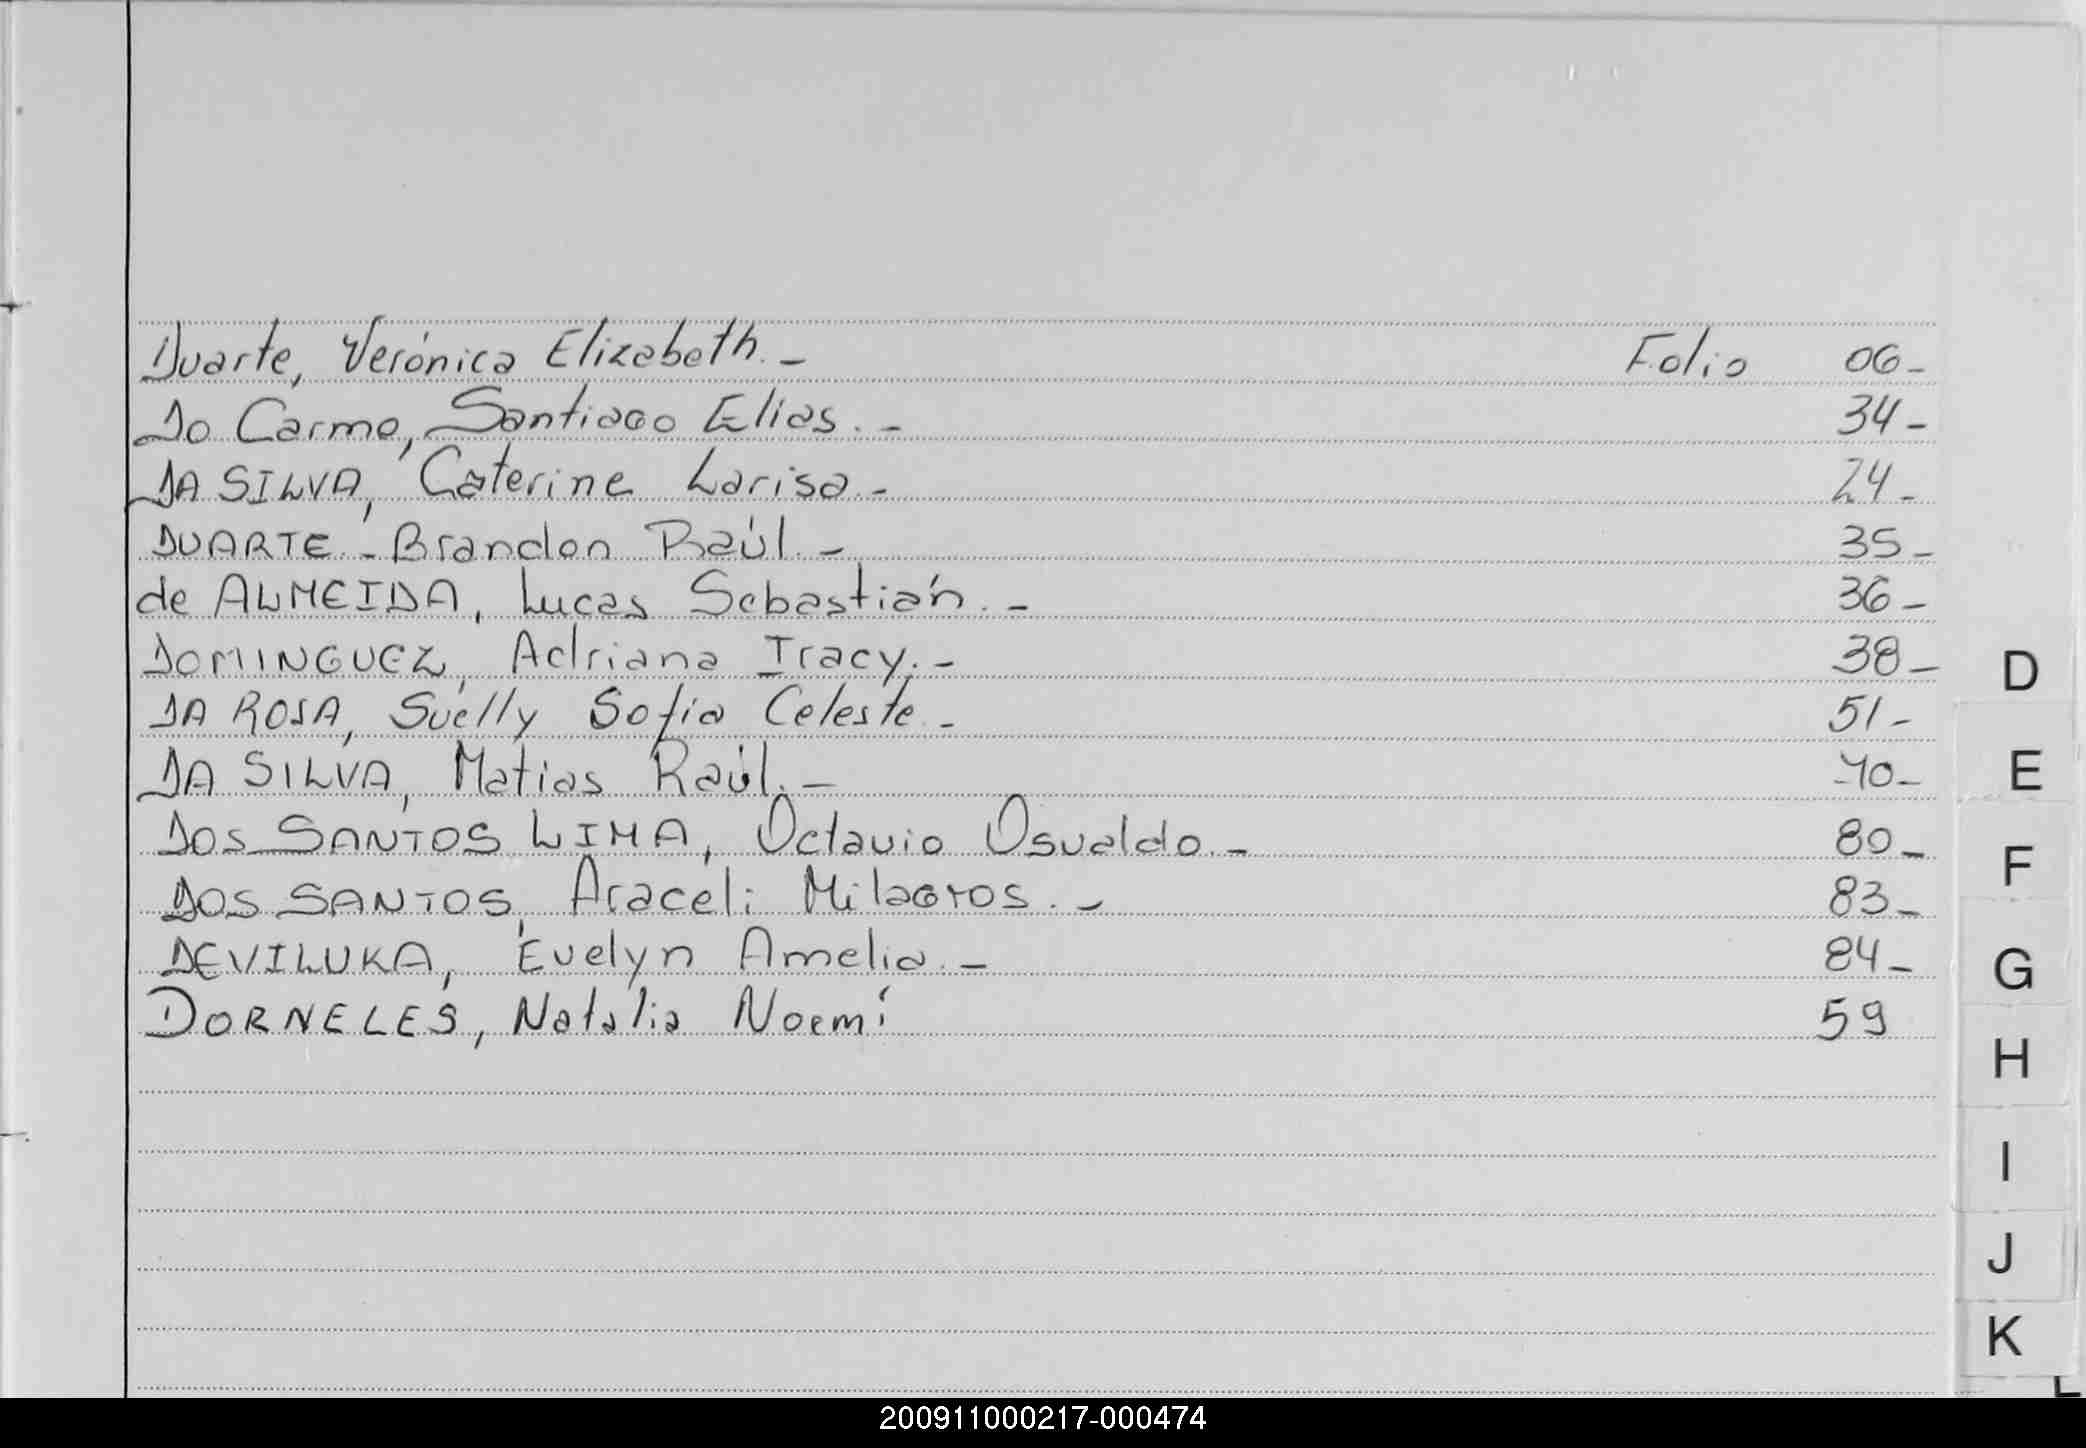 Duarte, Verónica Elizabeth.- Folio 06-
Do Carmo, Santiago Elias.- 34-
DA SILVA, Caterine Larisa.- 24-
DUARTE - Brandon Raúl.- 35-
de ALMEIDA, Lucas Sebastián.- 36-
DOMINGUEZ, Adriana Tracy.- 38-
DA ROSA, Suelly Sofia Celeste.- 51-
DA SILVA, Matias Raúl.- 40-
DOS SANTOS LIMA, Octavio Osvaldo.- 80-
DOS SANTOS, Araceli Milagros.- 83-
DEVILUKA, Evelyn Amelia.- 84-
DORNELES, Natalia Noemí 59
D
E
F
G
H
I
J
K
L
200911000217-000474